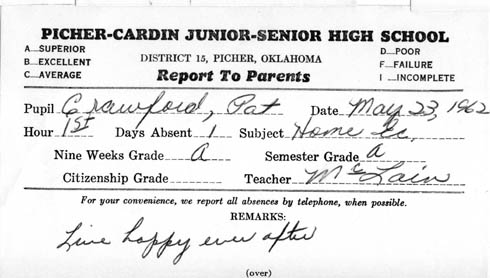 PICHER-CARDIN JUNIOR-SENIOR HIGH SCHOOL
A...SUPERIOR
B...EXCELLENT
C...AVERAGE
DISTRICT 15, PICHER, OKLAHOMA
Report To Parents
D...POOR
F...FAILURE
I ...INCOMPLETE
Pupil Crawford, Pat Date May 23, 1962
Hour 1st Days Absent 1 Subject Home Ec.
Nine Weeks Grade A Semester Grade A
Citizenship Grade Teacher McLain
For your convenience, we report all absences by telephone, when possible.
REMARKS:
Live happy ever after
(over)